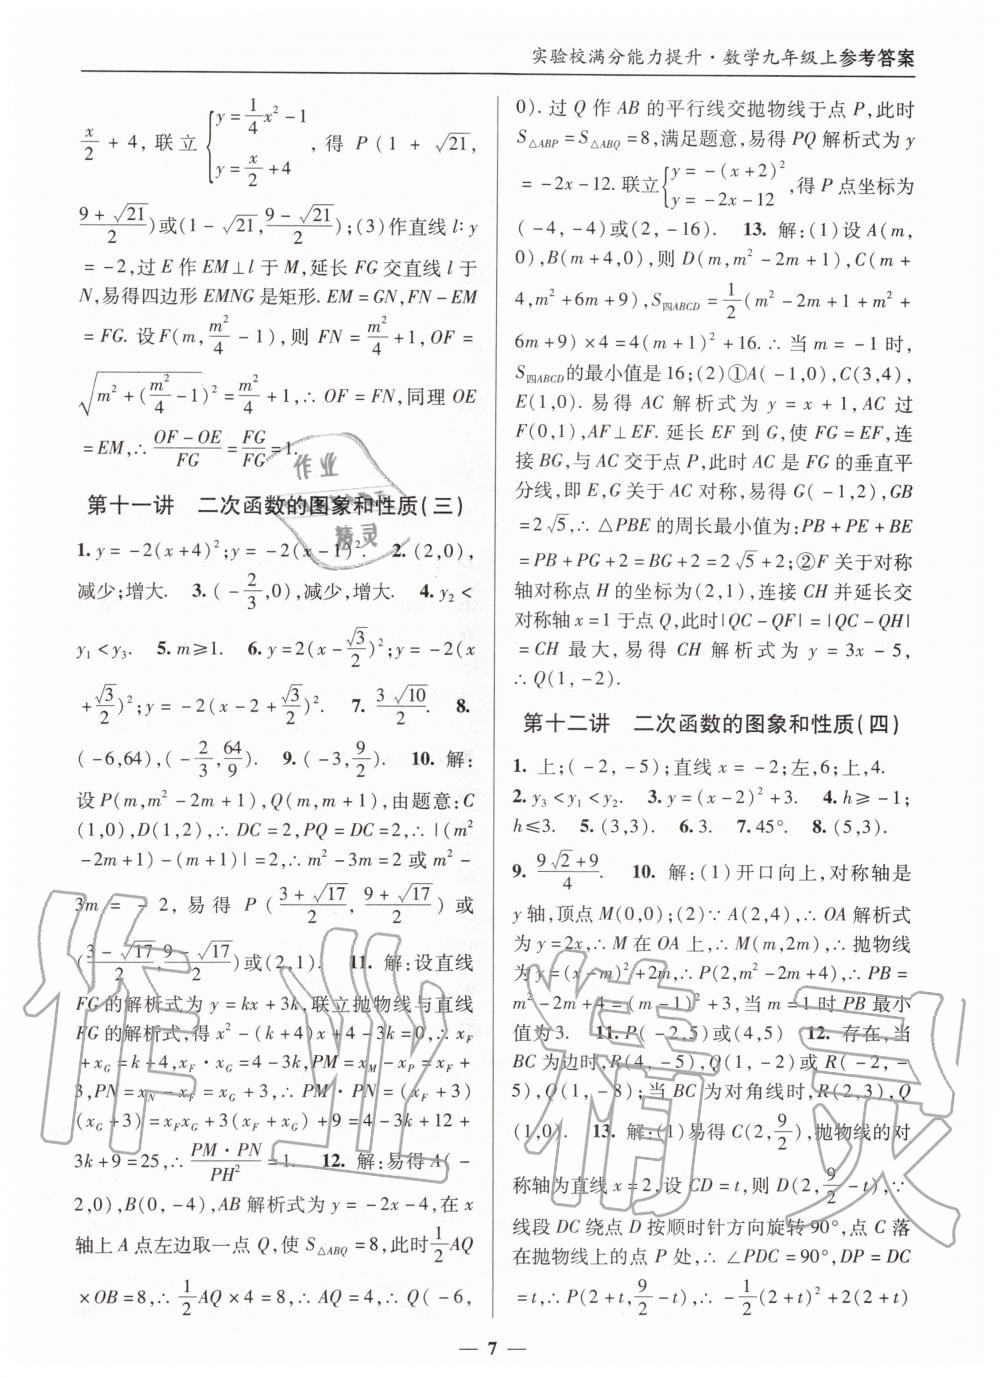 实验校满分能力提升·数学九年级上参考答案
x/2 + 4, 联立 { y = 1/4 x² - 1, y = x/2 + 4 , 得 P(1 + √21,
(9 + √21)/2)或(1 - √21, (9 - √21)/2);(3)作直线 l: y
= -2,过 E 作 EM⊥l 于 M,延长 FG 交直线 l 于
N,易得四边形 EMNG 是矩形. EM = GN, FN - EM
= FG. 设F(m, m²/4 - 1), 则 FN = m²/4 + 1, OF =
√(m² + (m²/4 - 1)²) = m²/4 + 1,∴ OF = FN,同理 OE
= EM,∴ (OF - OE)/FG = FG/FG = 1.
第十一讲 二次函数的图象和性质(三)
1. y = -2(x+4)²;y = -2(x-1)². 2. (2,0),
减少;增大. 3. (-2/3,0),减少;增大. 4. y₂ <
y₁ < y₃. 5. m≥1. 6. y=2(x-√3/2)²;y=-2(x
+√3/2)²;y=-2(x-2+√3/2)². 7. 3√10/2. 8.
(-6,64),(-2/3,64/9). 9. (-3,9/2). 10. 解:
设 P(m,m²-2m+1),Q(m,m+1),由题意:C
(1,0),D(1,2),∴ DC=2,PQ=DC=2,∴ |(m²
-2m+1)-(m+1)|=2,∴ m²-3m=2 或 m²-
3m = -2, 易得 P((3+√17)/2, (9+√17)/2) 或
((3-√17)/2,(9-√17)/2)或(2,1). 11. 解:设直线
FG的解析式为 y=kx+3k,联立抛物线与直线
FG的解析式,得 x²-(k+4)x+4-3k=0,∴ x_F
+x_G=k+4,x_F·x_G=4-3k,PM=x_M-x_P=x_F+
3,PN=x_N-x_F=x_G+3,∴ PM·PN=(x_F+3)
(x_G+3)=x_Fx_G+3(x_F+x_G)+9=4-3k+12+
3k+9=25,∴ (PM·PN)/PH²=1. 12. 解:易得 A(-
2,0),B(0,-4),AB 解析式为 y=-2x-4,在 x
轴上 A 点左边取一点 Q,使 S△ABQ=8,此时 1/2 AQ
×OB=8,∴ 1/2 AQ×4=8,∴ AQ=4,∴ Q(-6,
0). 过 Q 作 AB 的平行线交抛物线于点 P,此时
S△ABP=S△ABQ=8,满足题意,易得 PQ 解析式为 y
=-2x-12. 联立 { y=-(x+2)², y=-2x-12 ,得 P 点坐标为
(-4,-4)或(2,-16). 13. 解:(1)设 A(m,
0),B(m+4,0),则 D(m,m²-2m+1),C(m+
4,m²+6m+9),S四ABCD=1/2(m²-2m+1+m²+
6m+9)×4=4(m+1)²+16. ∴ 当 m=-1 时,
S四ABCD的最小值是16;(2)①A(-1,0),C(3,4),
E(1,0). 易得 AC 解析式为 y=x+1,AC 过
F(0,1),AF⊥EF. 延长 EF 到 G,使 FG=EF,连
接 BG,与 AC 交于点 P,此时 AC 是 FG 的垂直平
分线,即 E,G 关于 AC 对称,易得 G(-1,2),GB
=2√5,∴ △PBE 的周长最小值为:PB+PE+BE
=PB+PG+2=BG+2=2√5+2;②F 关于对称
轴对称点 H 的坐标为(2,1),连接 CH 并延长交
对称轴 x=1 于点 Q,此时|QC-QF|=|QC-QH|
=CH 最大,易得 CH 解析式为 y=3x-5,
∴ Q(1,-2).
第十二讲 二次函数的图象和性质(四)
1. 上;(-2,-5);直线 x=-2;左,6;上,4.
2. y₃<y₁<y₂. 3. y=(x-2)²+3. 4. h≥-1;
h≤3. 5. (3,3). 6. 3. 7. 45°. 8. (5,3).
9. (9√2+9)/4. 10. 解:(1)开口向上,对称轴是
y 轴,顶点 M(0,0);(2)∵ A(2,4),∴ OA 解析式
为 y=2x,∴ M 在 OA 上,∴ M(m,2m),∴ 抛物线
为 y=(x-m)²+2m,∴ P(2,m²-2m+4),∴ PB=
m²-2m+4=(m-1)²+3,当 m=1 时 PB 最小
值为 3. 11. P(-2,5)或(4,5) 12. 存在,当
BC 为边时,R(4,-5),Q(1,-2)或 R(-2,-
5),Q(1,-8);当 BC 为对角线时,R(2,3),Q
(1,0). 13. 解:(1)易得 C(2,9/2),抛物线的对
称轴为直线 x=2,设 CD=t,则 D(2,9/2-t),∵
线段 DC 绕点 D 按顺时针方向旋转 90°,点 C 落
在抛物线上的点 P 处,∴ ∠PDC=90°,DP=DC
=t,∴ P(2+t,9/2-t),∴ -1/2(2+t)²+2(2+t)
作业
精灵
作业精灵
— 7 —